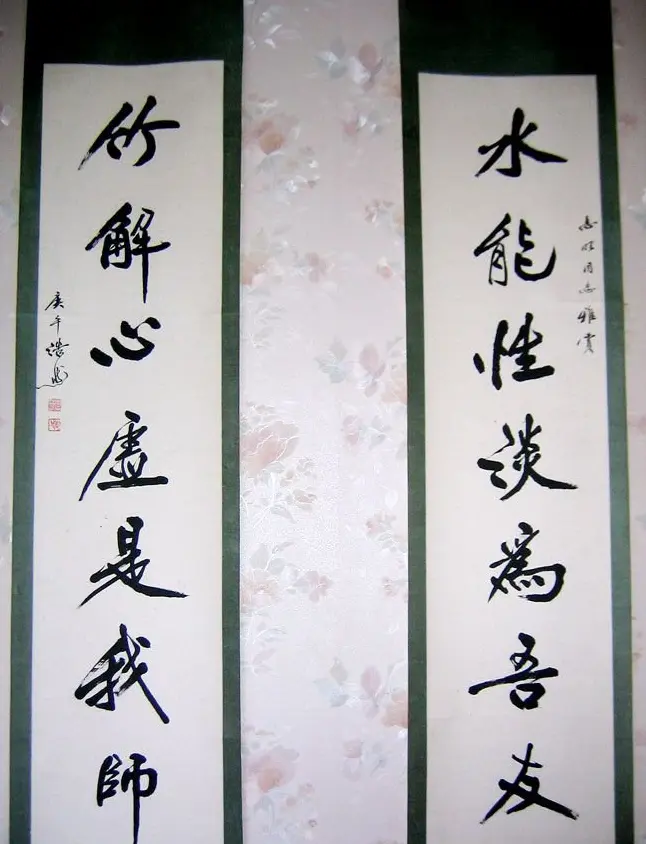 水能性淡為吾友
同志雅賞
竹解心虛是我師
庚午